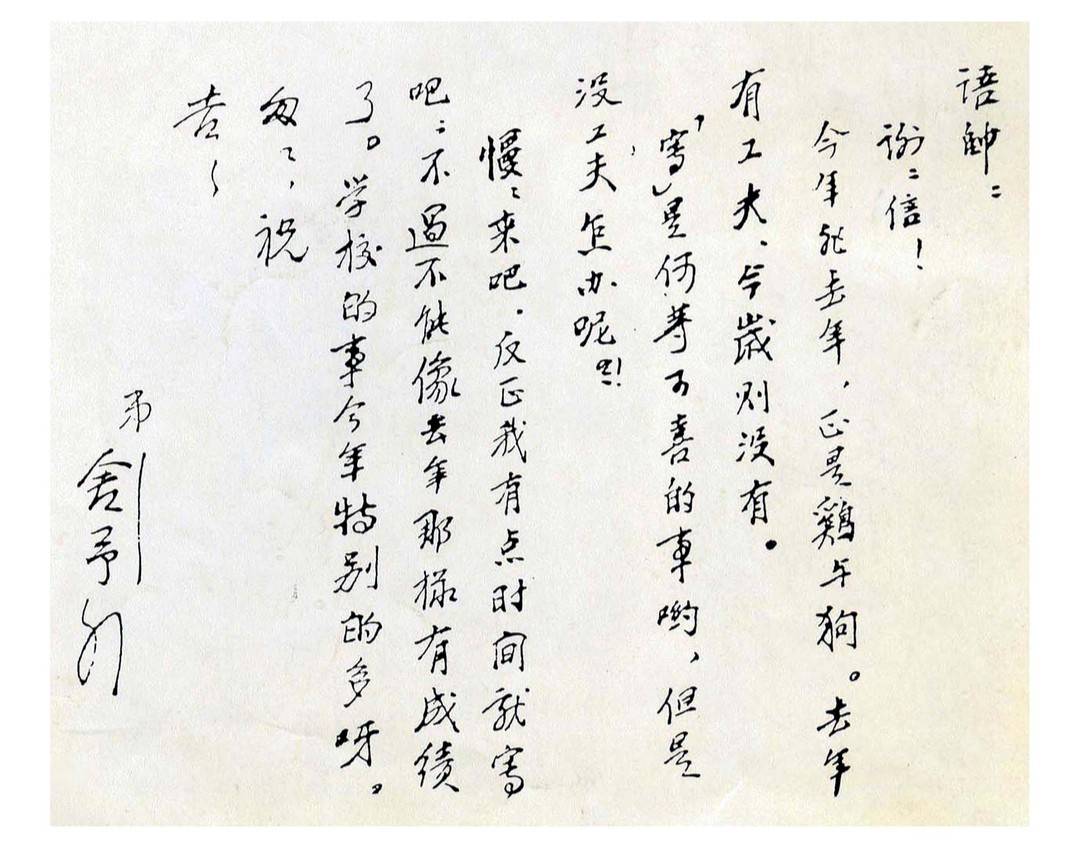 语帥：
谢：信！
今年能去年，正是鷄与狗。去年
有工夫，今歲则没有。
「寫」是何等可喜的事哟，但是
没工夫怎办呢？！
慢：来吧，反正我有点时间就寫
吧：不過不能像去年那様有成绩
了。学校的事今年特别的多呀。
匆：，祝
吉〱
弟
舍予